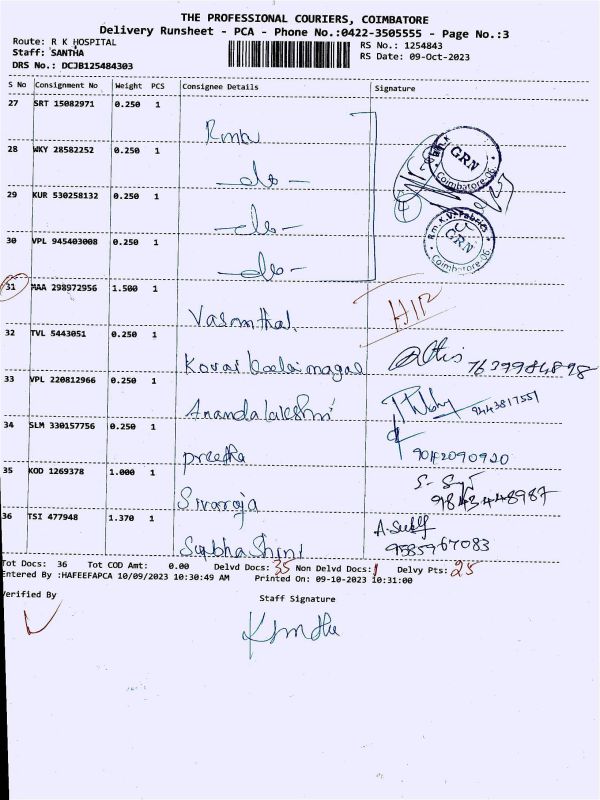 THE PROFESSIONAL COURIERS, COIMBATORE
Delivery Runsheet - PCA - Phone No.:0422-3505555 - Page No.:3
Route: R K HOSPITAL
Staff: SANTHA
DRS No.: DCJB125484303
RS No.: 1254843
RS Date: 09-Oct-2023
S No Consignment No Weight PCS Consignee Details Signature
27 SRT 15082971 0.250 1
Rmkv
28 WKY 28582252 0.250 1
-do-
29 KUR 530258132 0.250 1
-do-
30 VPL 945403008 0.250 1
-do-
GRN
Coimbatore-06
GRN
Coimbatore-06
31 MAA 298972956 1.500 1
Vasanthal
32 TVL 5443051 0.250 1
Kovai Kalaimagal 7639984898
33 VPL 220812966 0.250 1
Anandalakshmi 9443817551
34 SLM 330157756 0.250 1
preetha 9042090920
35 KOD 1269378 1.000 1
Sivaraja 9843448987
36 TSI 477948 1.370 1
Subhashini 9585967083
Tot Docs: 36 Tot COD Amt: 0.00 Delvd Docs: 35 Non Delvd Docs: 1 Delvy Pts: 25
Entered By :HAFEEFAPCA 10/09/2023 10:30:49 AM Printed On: 09-10-2023 10:31:00
Verified By Staff Signature